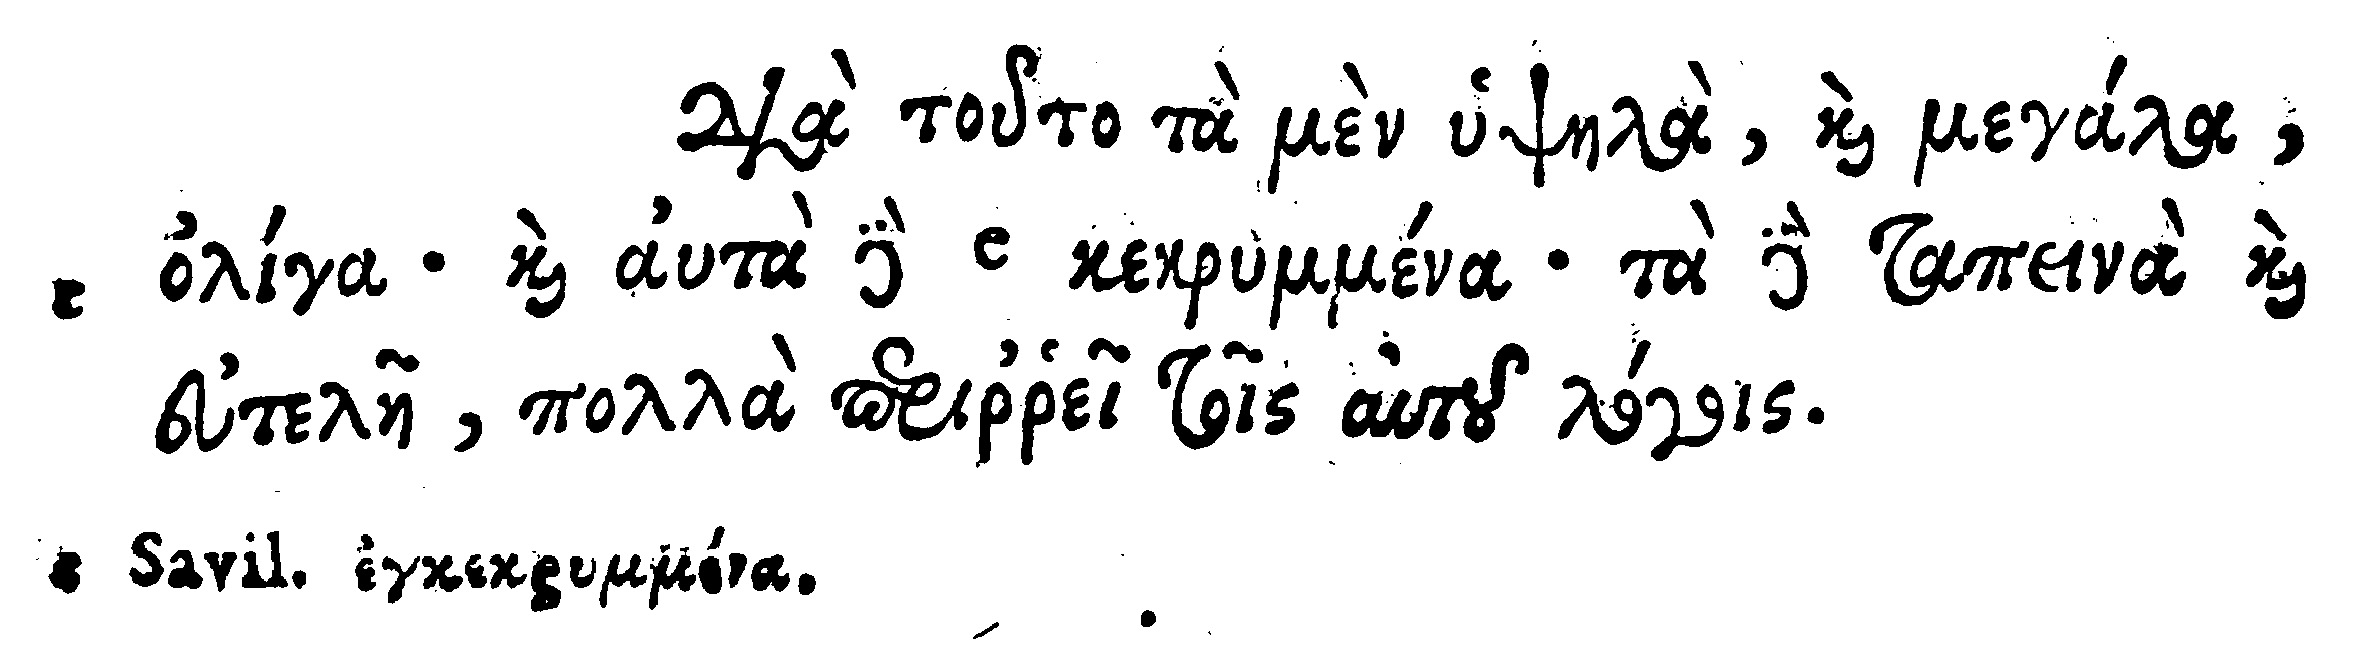 Διὰ τοῦτο τὰ μὲν ὑψηλὰ, καὶ μεγάλα,
ὀλίγα· καὶ αὐτὰ δὲ e κεκρυμμένα· τὰ δὲ ταπεινὰ καὶ
e εὐτελῆ, πολλὰ περιῤῥεῖ τοῖς αὐτοῦ λόγοις.
e Savil. ἐγκεκρυμμένα.